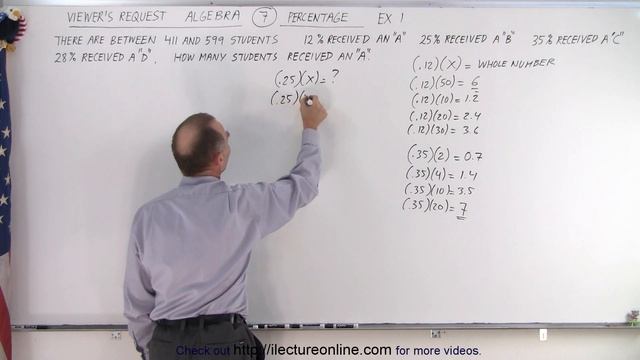 VIEWER'S REQUEST ALGEBRA 7 PERCENTAGE EX 1
THERE ARE BETWEEN 411 AND 599 STUDENTS 12% RECEIVED AN "A" 25% RECEIVED A "B" 35% RECEIVED A "C"
28% RECEIVED A "D". HOW MANY STUDENTS RECEIVED AN "A".
(.25)(X) = ?
(.25)(
(.12)(X) = WHOLE NUMBER
(.12)(50) = 6
(.12)(10) = 1.2
(.12)(20) = 2.4
(.12)(30) = 3.6
(.35)(2) = 0.7
(.35)(4) = 1.4
(.35)(10) = 3.5
(.35)(20) = 7
Check out http://ilectureonline.com for more videos.